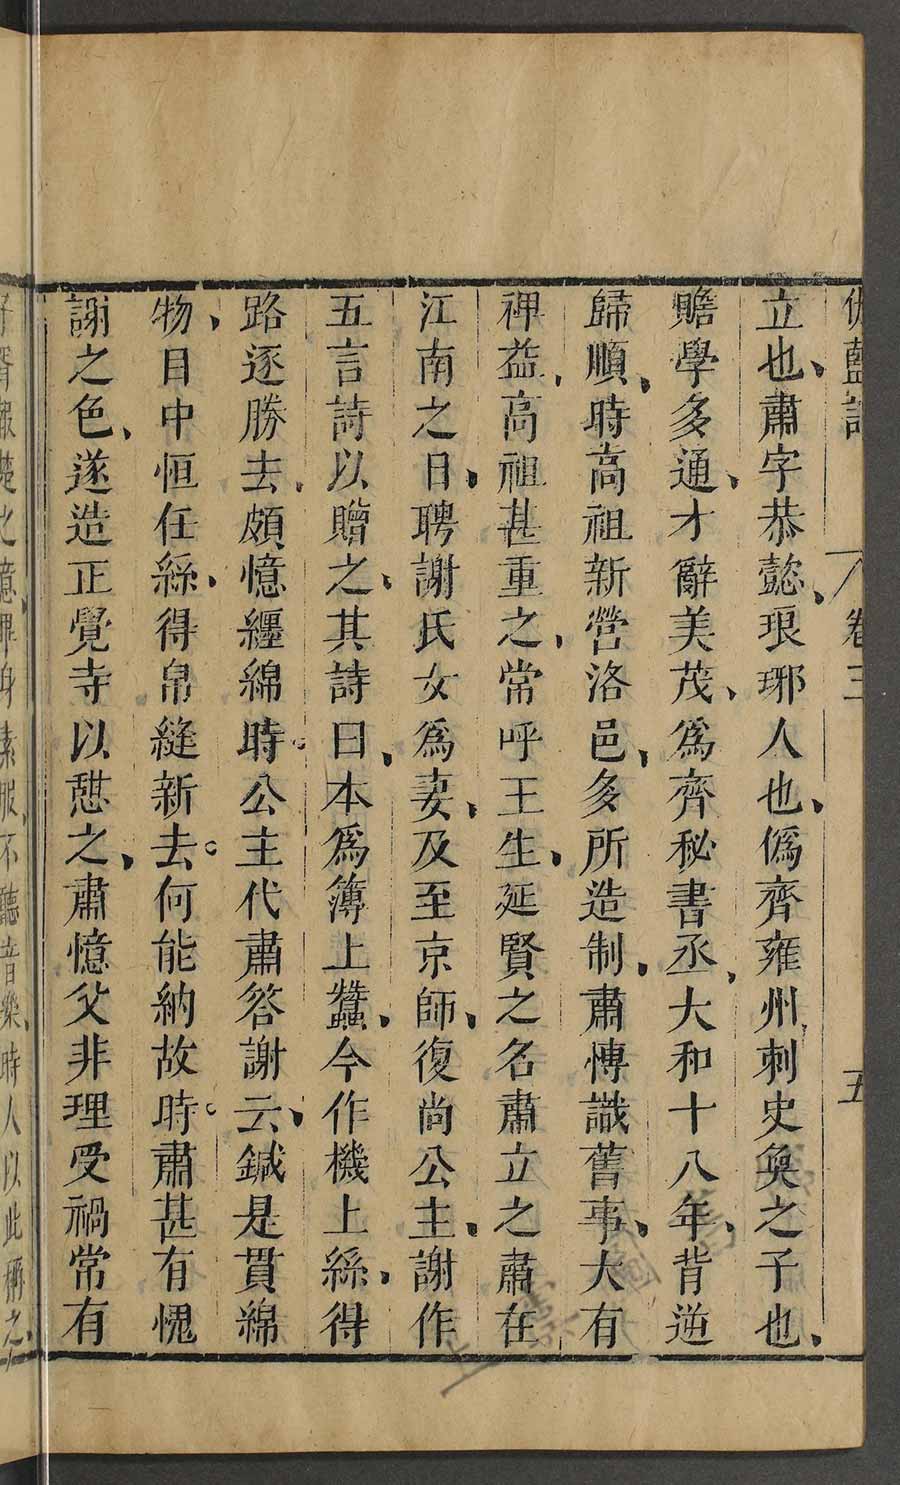 伽藍記 卷三 五
立也、肅字恭懿、琅琊人也、僞齊雍州刺史奐之子也、
贍學多通、才辭美茂、爲齊秘書丞、大和十八年、背逆
歸順、時高祖新營洛邑、多所造制、肅愽識舊事、大有
裨益、高祖甚重之、常呼王生、延賢之名肅立之肅在
江南之日、聘謝氏女爲妻、及至京師、復尚公主、謝作
五言詩以贈之、其詩曰、本爲簿上蠶、今作機上絲、得
路逐勝去、頗憶纏綿時。公主代肅答謝云、鍼是貫綿
物、目中恒任絲、得帛縫新去。何能納故時。肅甚有愧
謝之色、遂造正覺寺以憇之、肅憶父非理受禍常有
子胥報楚之意、畢身素服、不聽音樂、時人以此稱之、